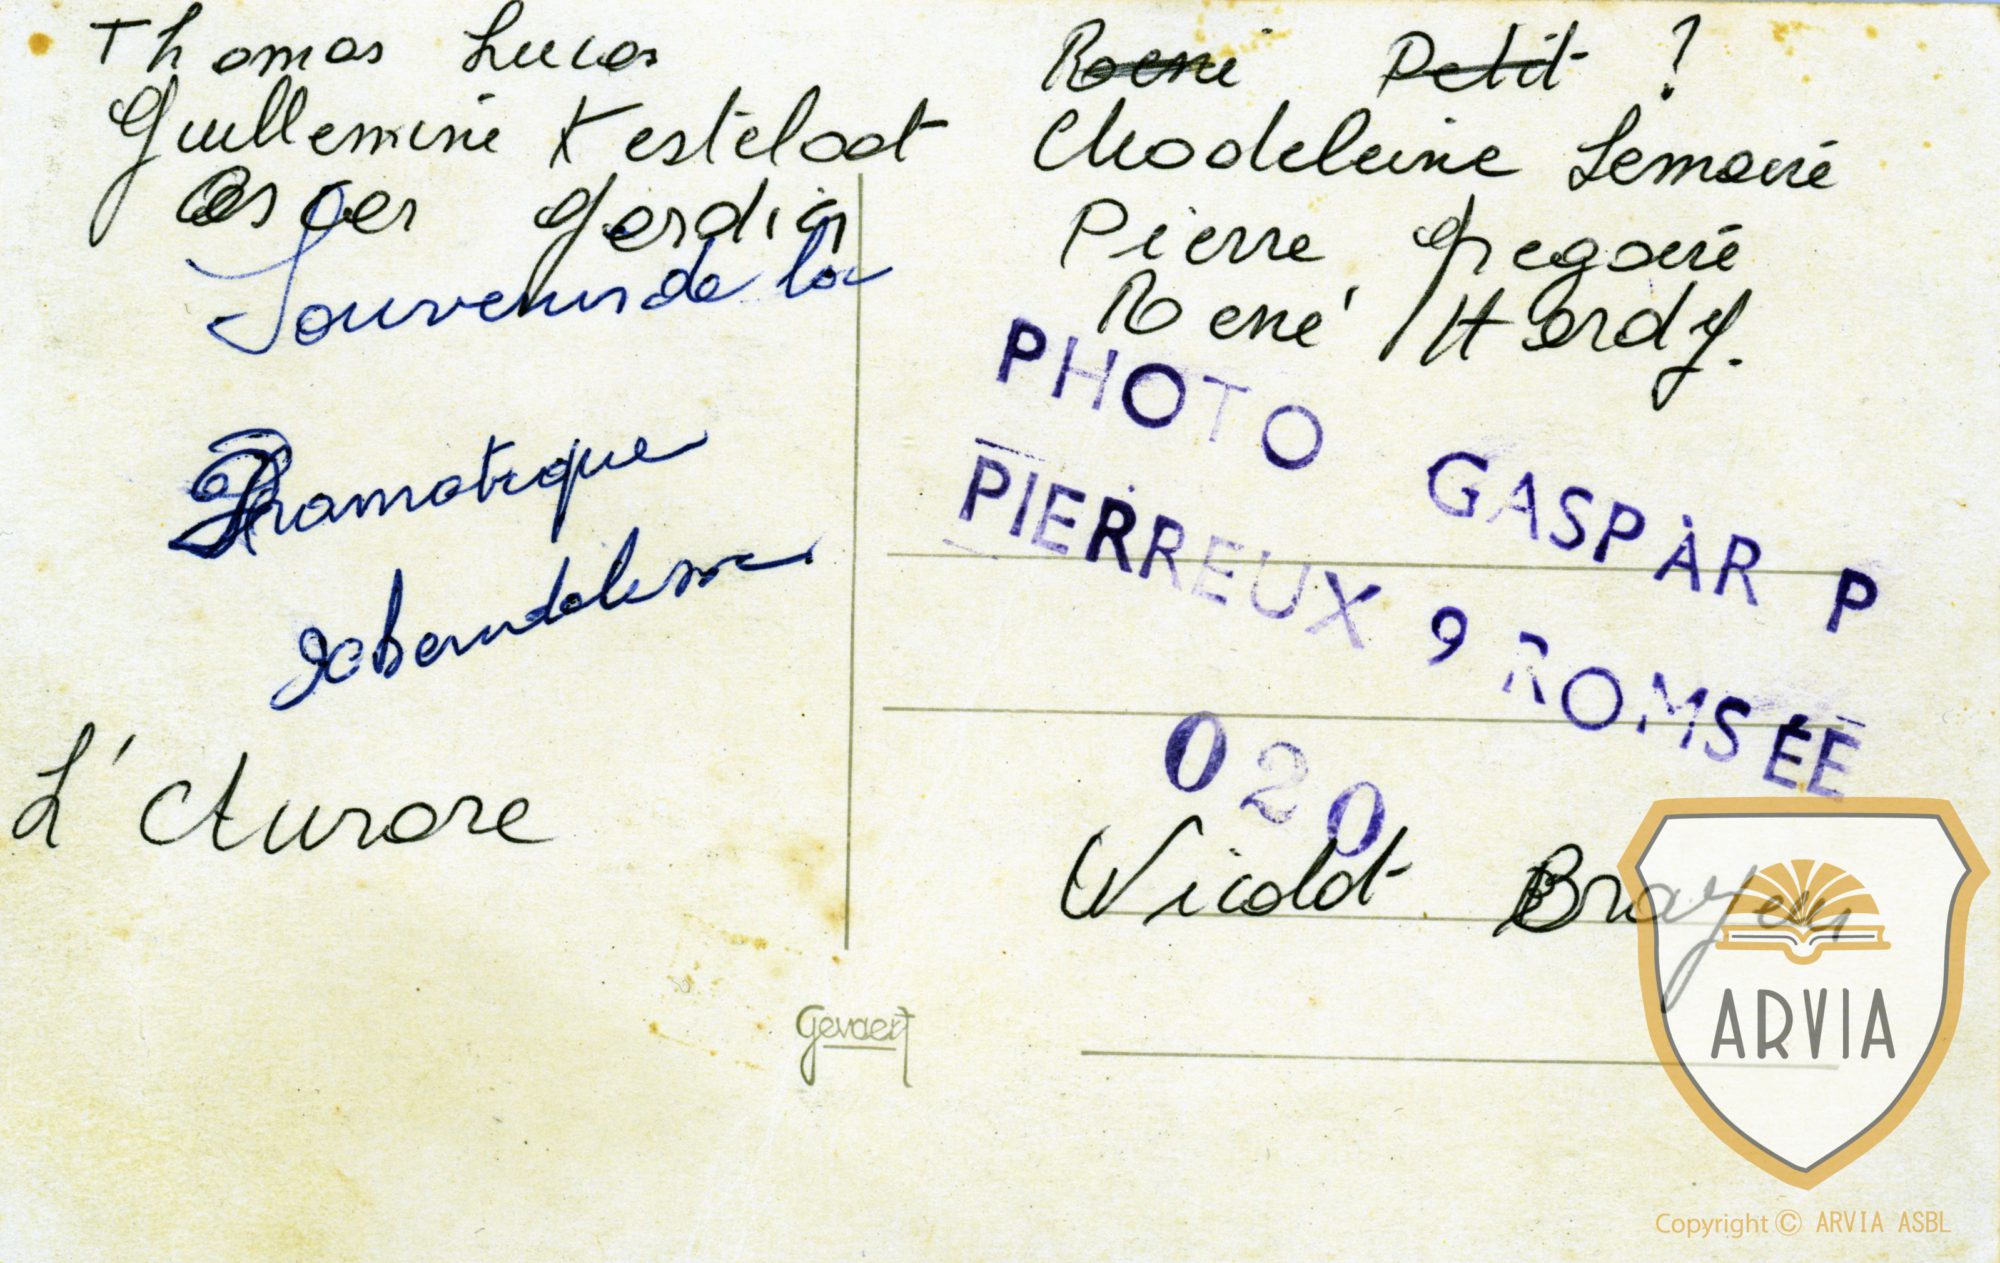 Thomas Lucas
Guillemine Kesteloot
Oscar Gerdin
Souvenirs de la
Dramatique
L'Aurore
René Petit ?
Madeleine Lemaire
Pierre Gregoire
René Hardy.
PHOTO GASPAR P
PIERREUX 9 ROMSÉE
020
Nicolot
Gevaert
ARVIA
Copyright © ARVIA ASBL